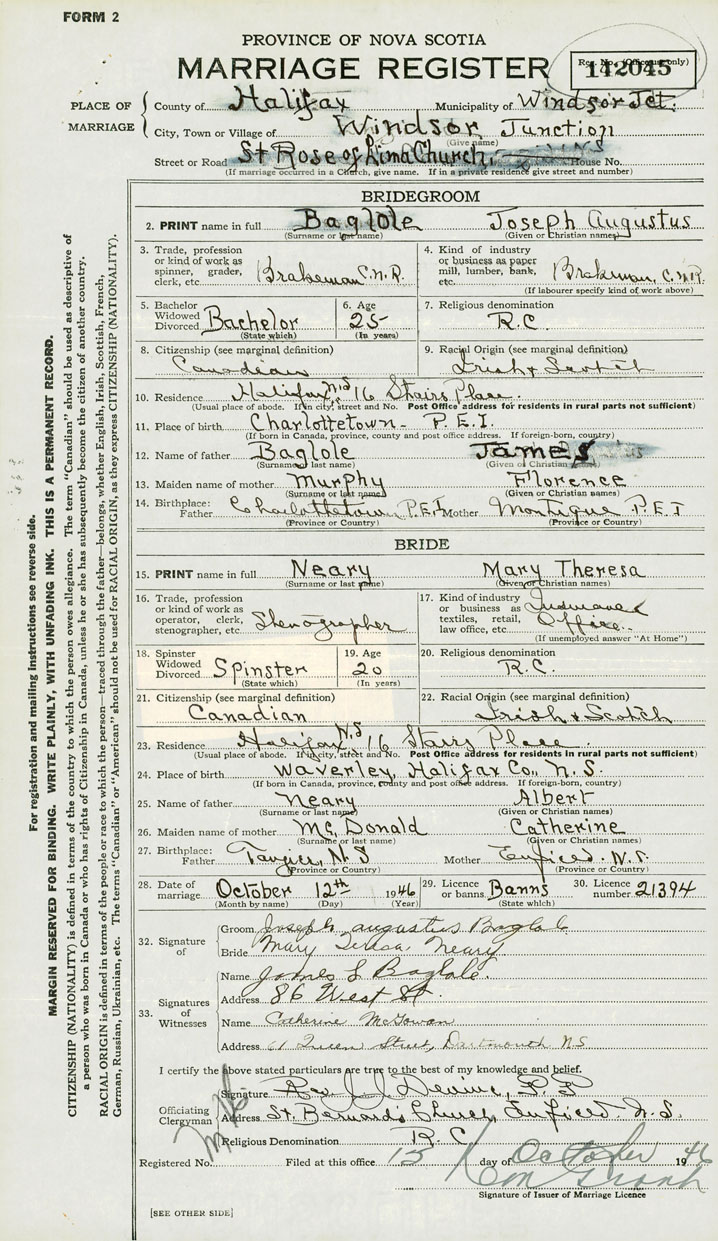 FORM 2
PROVINCE OF NOVA SCOTIA
MARRIAGE REGISTER
Reg. No. (Office use only)
142045
PLACE OF MARRIAGE
County of Halifax Municipality of Windsor Jct.
City, Town or Village of Windsor Junction
(Give name)
Street or Road St Rose of Lima Church, House No.
(If marriage occurred in a Church, give name. If in a private residence give street and number)
BRIDEGROOM
2. PRINT name in full Baglole Joseph Augustus
(Surname or last name) (Given or Christian names)
3. Trade, profession or kind of work as spinner, grader, clerk, etc. Brakeman C.N.R.
4. Kind of industry or business as paper mill, lumber, bank, etc. Brakeman, C.N.R.
(If labourer specify kind of work above)
5. Bachelor Widowed Divorced Bachelor
(State which)
6. Age 25
(In years)
7. Religious denomination
R.C.
8. Citizenship (see marginal definition)
Canadian
9. Racial Origin (see marginal definition)
Irish & Scotch
10. Residence Halifax N.S 16 Stairs Place.
(Usual place of abode. If in city, street and No. Post Office address for residents in rural parts not sufficient)
11. Place of birth Charlottetown - P.E.I.
(If born in Canada, province, county and post office address. If foreign-born, country)
12. Name of father Baglole James
(Surname or last name) (Given or Christian names)
13. Maiden name of mother Murphy Florence
(Surname or last name) (Given or Christian names)
14. Birthplace: Father Charlottetown, P.E.I Mother Montique P.E.I
(Province or Country) (Province or Country)
BRIDE
15. PRINT name in full Neary Mary Theresa
(Surname or last name) (Given or Christian names)
16. Trade, profession or kind of work as operator, clerk, stenographer, etc. Stenographer
17. Kind of industry or business as textiles, retail, law office, etc. Office.
(If unemployed answer "At Home")
18. Spinster Widowed Divorced Spinster
(State which)
19. Age 20
(In years)
20. Religious denomination
R.C.
21. Citizenship (see marginal definition)
Canadian
22. Racial Origin (see marginal definition)
Irish & Scotch
23. Residence Halifax N.S 16 Stairs Place.
(Usual place of abode. If in city, street and No. Post Office address for residents in rural parts not sufficient)
24. Place of birth Waverley, Halifax Co., N.S.
(If born in Canada, province, county and post office address. If foreign-born, country)
25. Name of father Neary Albert
(Surname or last name) (Given or Christian names)
26. Maiden name of mother Mc Donald Catherine
(Surname or last name) (Given or Christian names)
27. Birthplace: Father Tangier, N.S Mother Enfield. N.S.
(Province or Country) (Province or Country)
28. Date of marriage October 12th 1946
(Month by name) (Day) (Year)
29. Licence or banns Banns
(State which)
30. Licence number 21394
32. Signature of
Groom Joseph Augustus Baglole
Bride Mary Teresa Neary
33. Signatures of Witnesses
Name James L Baglole.
Address 86 West St.
Name Catherine McGowan
Address 61 Queen Street, Dartmouth N.S
I certify the above stated particulars are true to the best of my knowledge and belief.
Officiating Clergyman
Signature Rev. J. J. Devine, P.P
Address St. Bernard's Church, Enfield. N.S.
Religious Denomination R.C.
Registered No. Filed at this office 15 day of October 1946
Signature of Issuer of Marriage Licence
[SEE OTHER SIDE]
For registration and mailing instructions see reverse side.
MARGIN RESERVED FOR BINDING. WRITE PLAINLY, WITH UNFADING INK. THIS IS A PERMANENT RECORD.
CITIZENSHIP (NATIONALITY) is defined in terms of the country to which the person owes allegiance. The term "Canadian" should be used as descriptive of
a person who was born in Canada or who has rights of Citizenship in Canada, unless he or she has subsequently become the citizen of another country.
RACIAL ORIGIN is defined in terms of the people or race to which the person—traced through the father—belongs, whether English, Irish, Scottish, French,
German, Russian, Ukrainian, etc. The terms "Canadian" or "American" should not be used for RACIAL ORIGIN, as they express CITIZENSHIP (NATIONALITY).